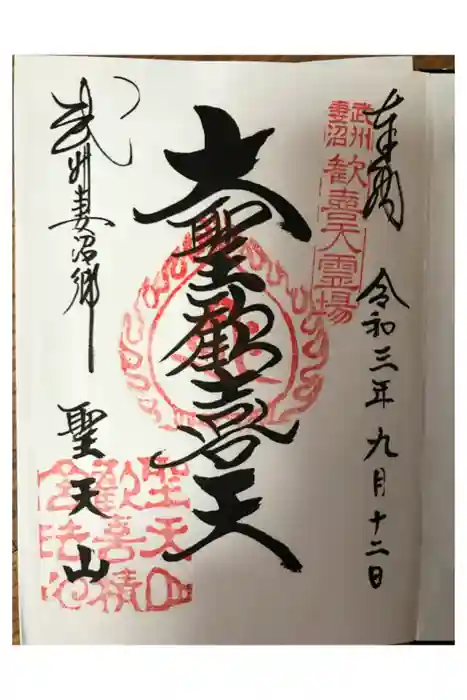 奉拝
令和三年九月十二日
武州
妻沼
歓喜天霊場
大聖歓喜天
武州妻沼郷
聖天山
聖天山
歓喜積